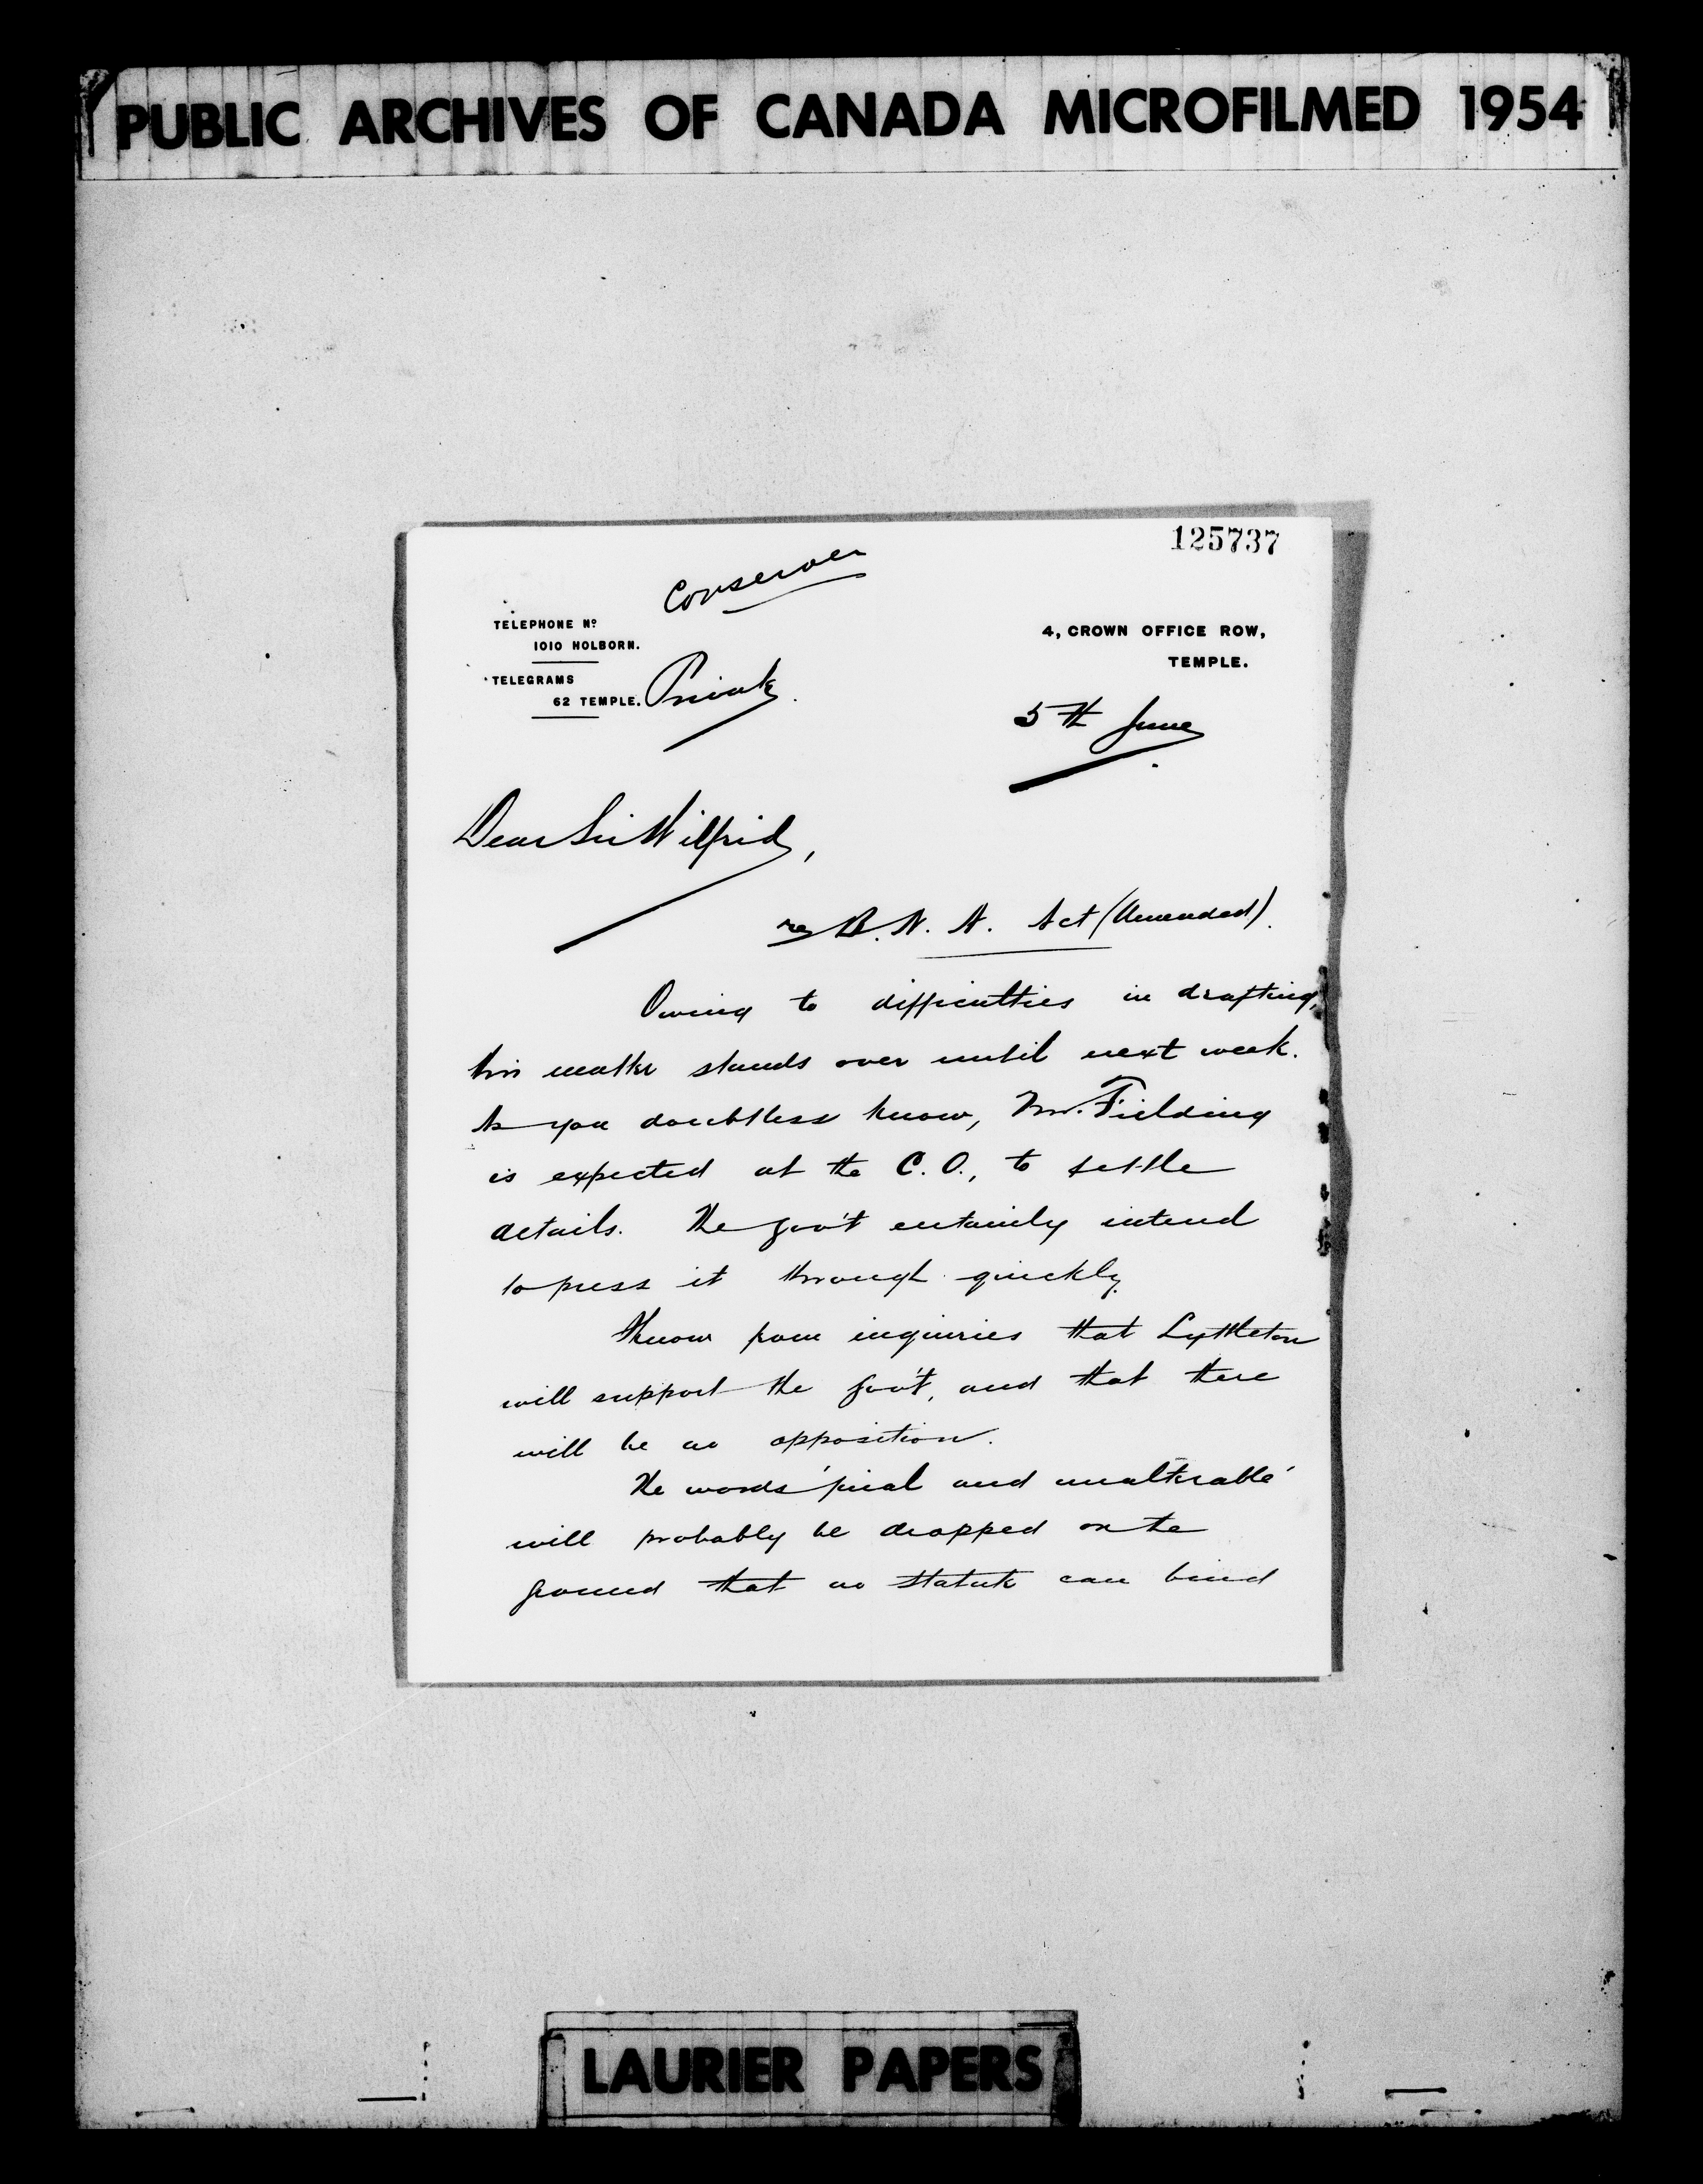 PUBLIC ARCHIVES OF CANADA MICROFILMED 1954
125737
Conserver
TELEPHONE Nº
1010 HOLBORN.
TELEGRAMS
62 TEMPLE.
Private
4, CROWN OFFICE ROW,
TEMPLE.
5th June
Dear Sir Wilfrid,
re B. N. A. Act (Amended).
Owing to difficulties in drafting,
this matter stands over until next week.
As you doubtless know, Mr. Fielding
is expected at the C. O., to settle
details. The gov't certainly intend
to press it through quickly.
I know from inquiries that Lyttleton
will support the gov't, and that there
will be no opposition.
The words 'final and unalterable'
will probably be dropped on the
ground that no statute can bind
LAURIER PAPERS